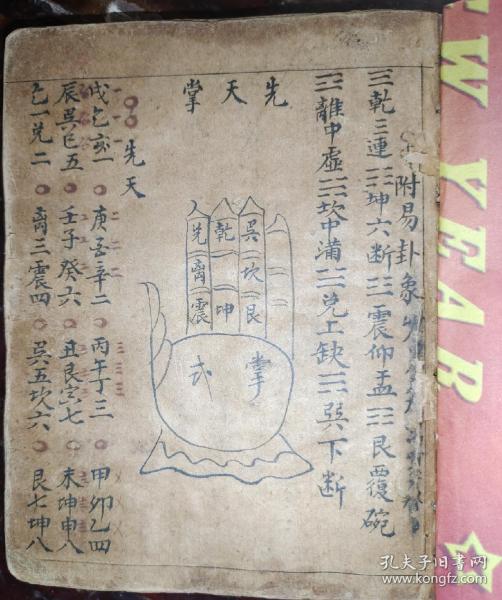 附易卦象
☰乾三連☷坤六断☳震仰盂☶艮覆碗
☲離中虚☵坎中满☱兑上缺☴巽下断
先天掌
兑 乾 巽
离 坎
震 坤 艮
掌式
先天
戌乞亥一 庚酉辛二 丙午丁三 甲卯乙四
辰巽巳五 壬子癸六 丑艮寅七 未坤申八
乞一兑二 离三震四 巽五坎六 艮七坤八
W YEAR
孔夫子旧书网
www.kongfz.com